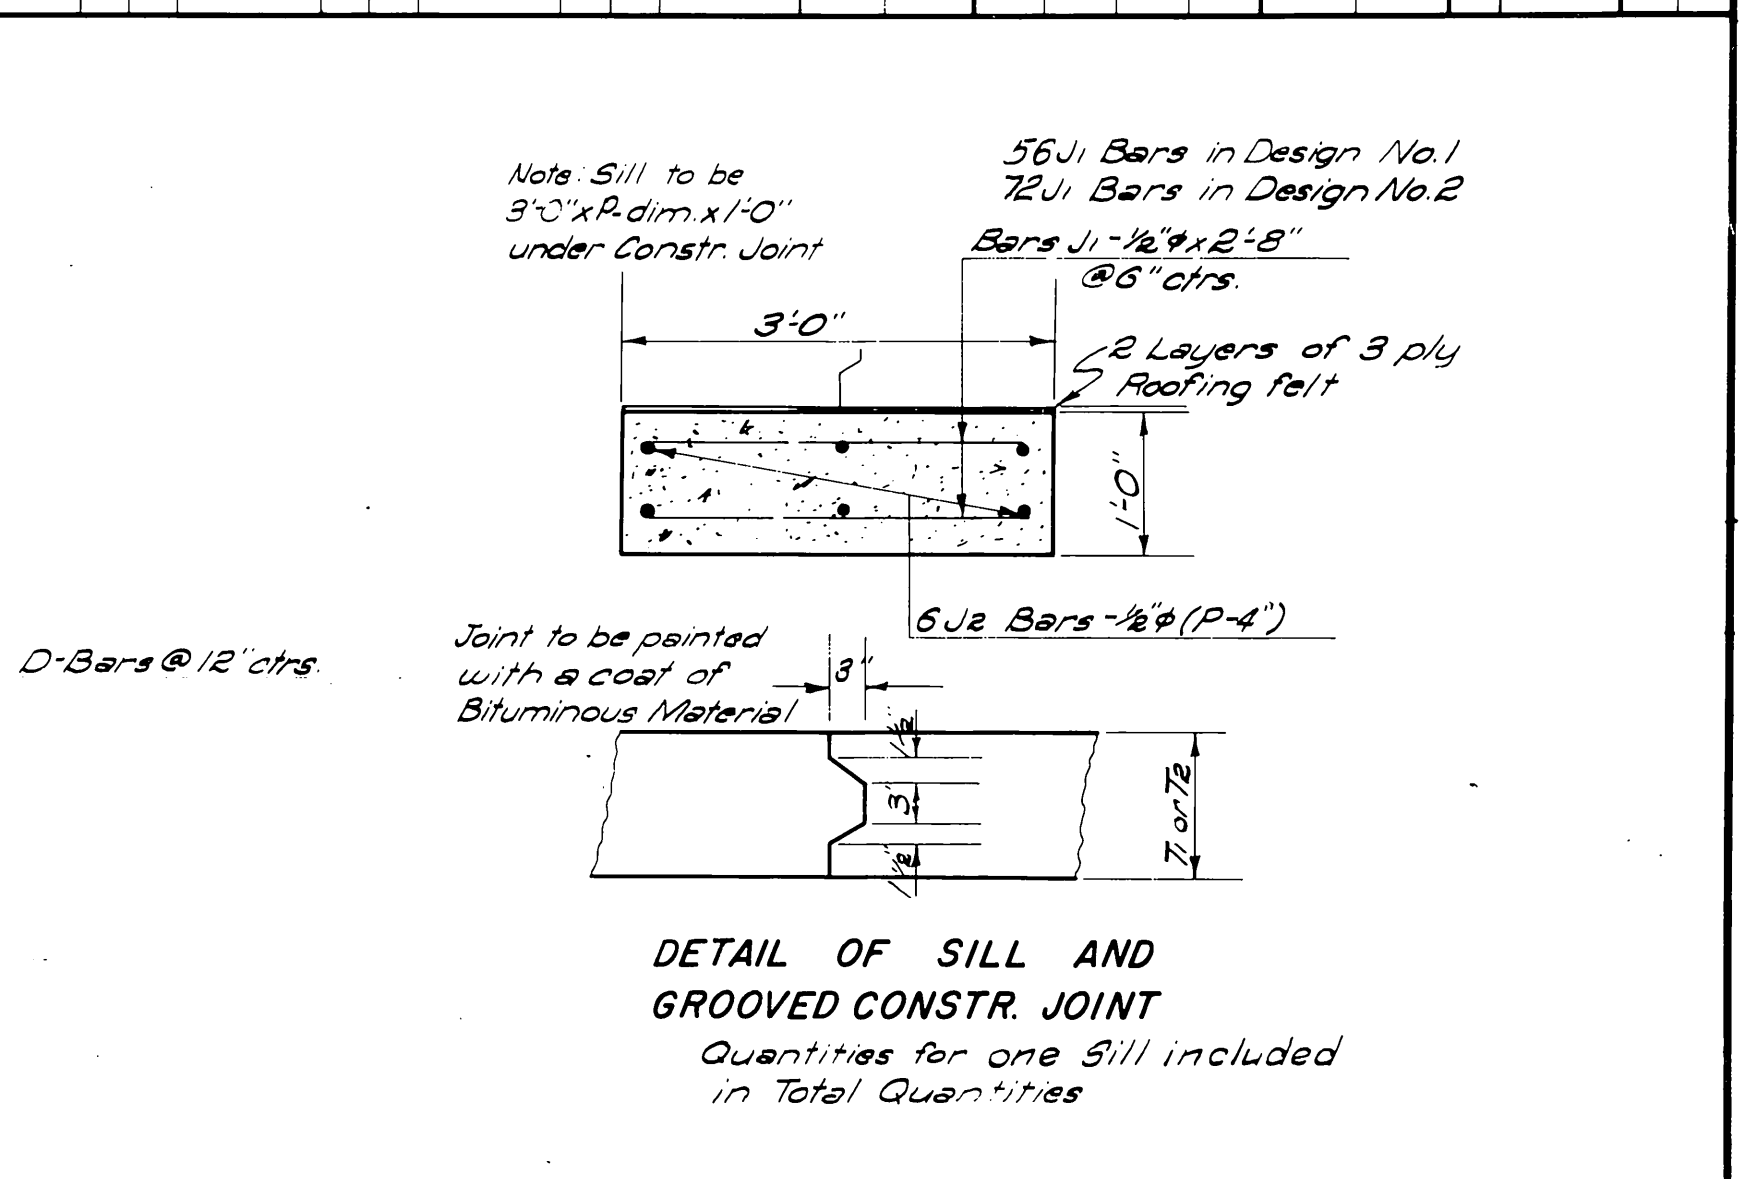 Note: Sill to be
3'-0"x P-dim. x 1'-0"
under Constr. Joint
56 J1 Bars in Design No. 1
72 J1 Bars in Design No. 2
Bars J1 - 1/2"φ x 2'-8"
@ 6" ctrs.
3'-0"
2 Layers of 3 ply
Roofing felt
1'-0"
6 J2 Bars - 1/2"φ (P-4")
D-Bars @ 12" ctrs.
Joint to be painted
with a coat of
Bituminous Material
3"
1 1/2
3"
1 1/2"
T1 or T2
DETAIL OF SILL AND
GROOVED CONSTR. JOINT
Quantities for one Sill included
in Total Quantities